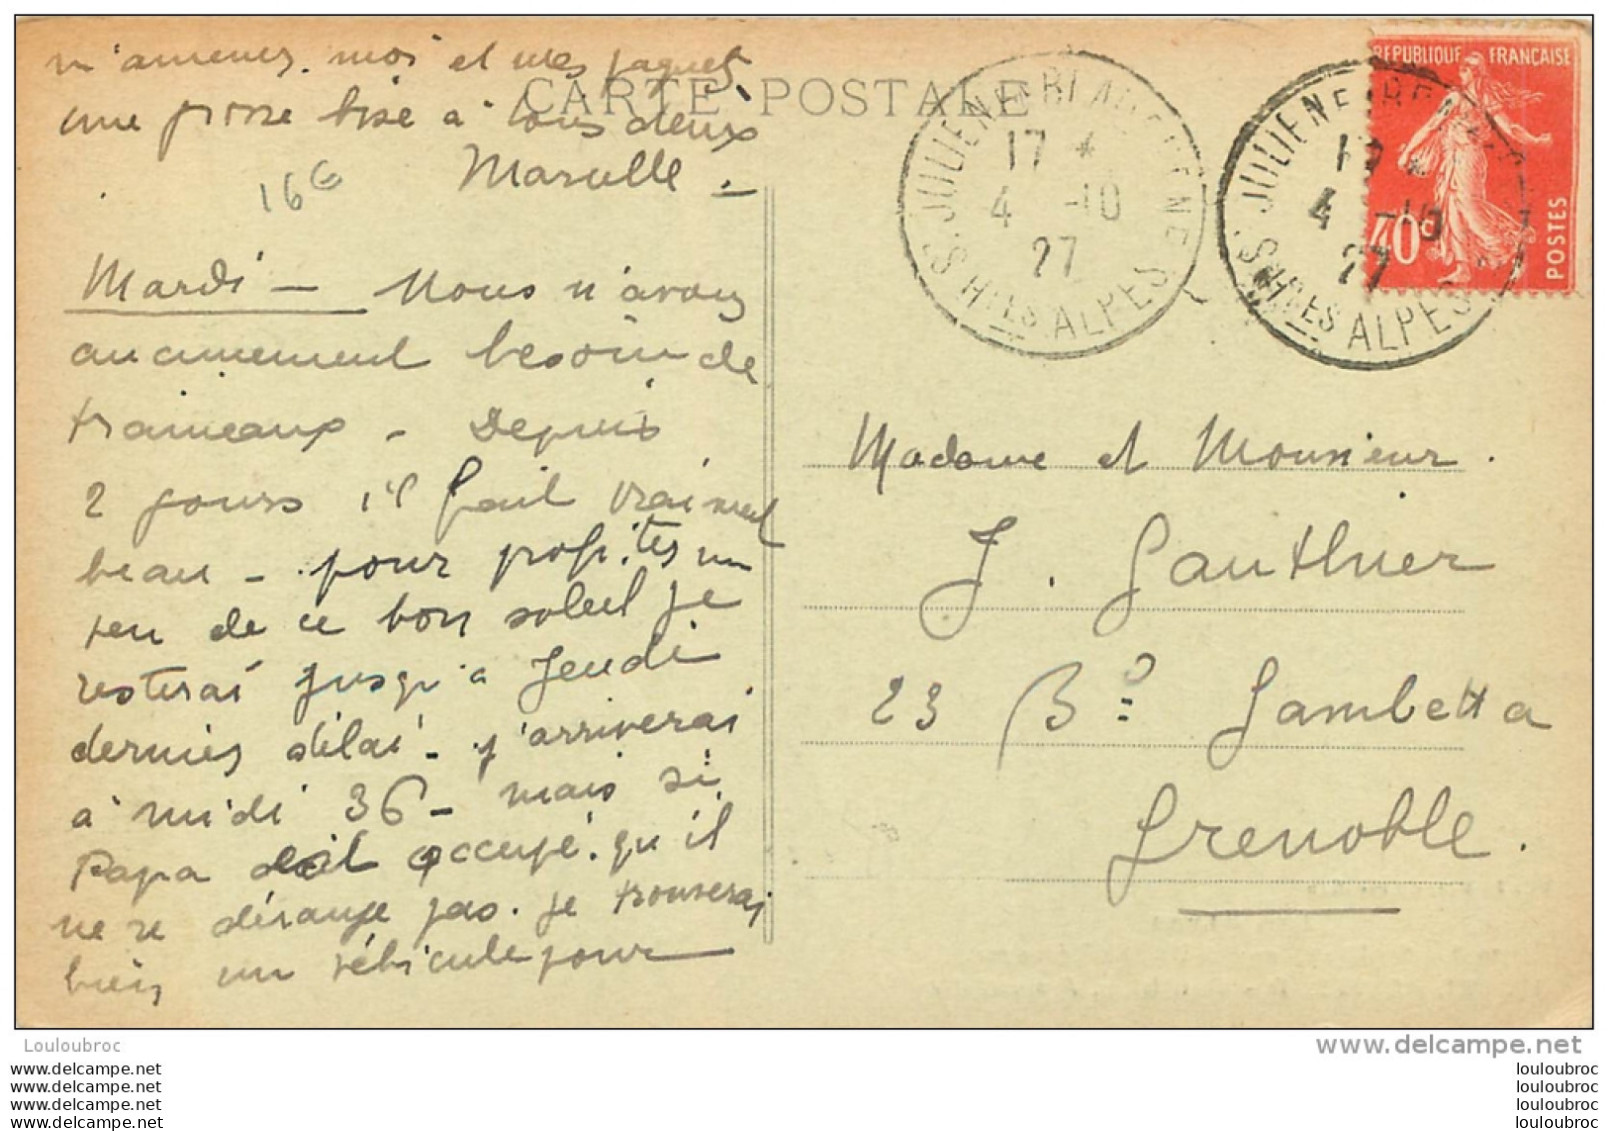 m'amener. moi et mes paquets
une grosse bise à tous deux
Marcelle -
16€
CARTE POSTALE
Mardi - Nous n'avons
aucunement besoin de
traineaux - Depuis
2 jours il fait vraiment
beau - pour profiter un
peu de ce bon soleil je
resterai jusqu'à Jeudi
dernier délai - j'arriverai
à midi 36 - mais si
Papa doit occupé. qu'il
ne se dérange pas. je trouverai
bien un véhicule pour
ST JULIEN EN
17 *
4 -10
27
HTES ALPES
ST JULIEN EN
17 *
4 -10
27
HTES ALPES
REPUBLIQUE FRANÇAISE
40c
POSTES
Madame et Monsieur.
J. Gauthier
23 Bd Gambetta
Grenoble.
Louloubroc
www.delcampe.net
www.delcampe.net
www.delcampe.net
www.delcampe.net
www.delcampe.net
louloubroc
louloubroc
louloubroc
louloubroc